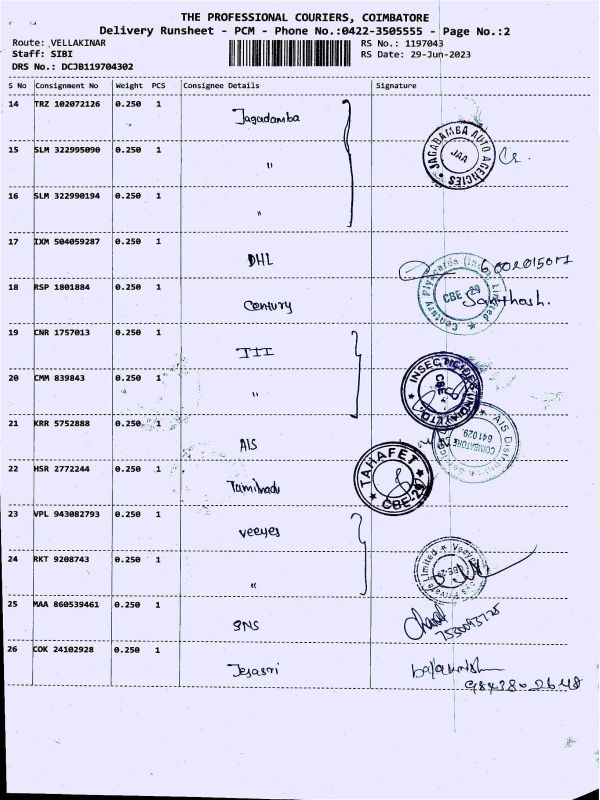 THE PROFESSIONAL COURIERS, COIMBATORE
Delivery Runsheet - PCM - Phone No.:0422-3505555 - Page No.:2
Route: VELLAKINAR RS No.: 1197043
Staff: SIBI RS Date: 29-Jun-2023
DRS No.: DCJB119704302
S No Consignment No Weight PCS Consignee Details Signature
14 TRZ 102072126 0.250 1 Jagadamba
JAGADAMBA AUTO AGENCIES
JAA
15 SLM 322995090 0.250 1 "
16 SLM 322990194 0.250 1 "
17 IXM 504059287 0.250 1 DHL
18 RSP 1801884 0.250 1 Century Santhosh.
CBE-29
19 CNR 1757013 0.250 1 III
20 CMM 839843 0.250 1 "
INSECTICIDES
CBE
21 KRR 5752888 0.250 1 AIS
COIMBATORE
641029.
22 HSR 2772244 0.250 1 Tamilnadu
TAHAFET
CBE-29
23 VPL 943082793 0.250 1 Veeyes
24 RKT 9208743 0.250 1 "
25 MAA 860539461 0.250 1 SNS
26 COK 24102928 0.250 1 Jesasri